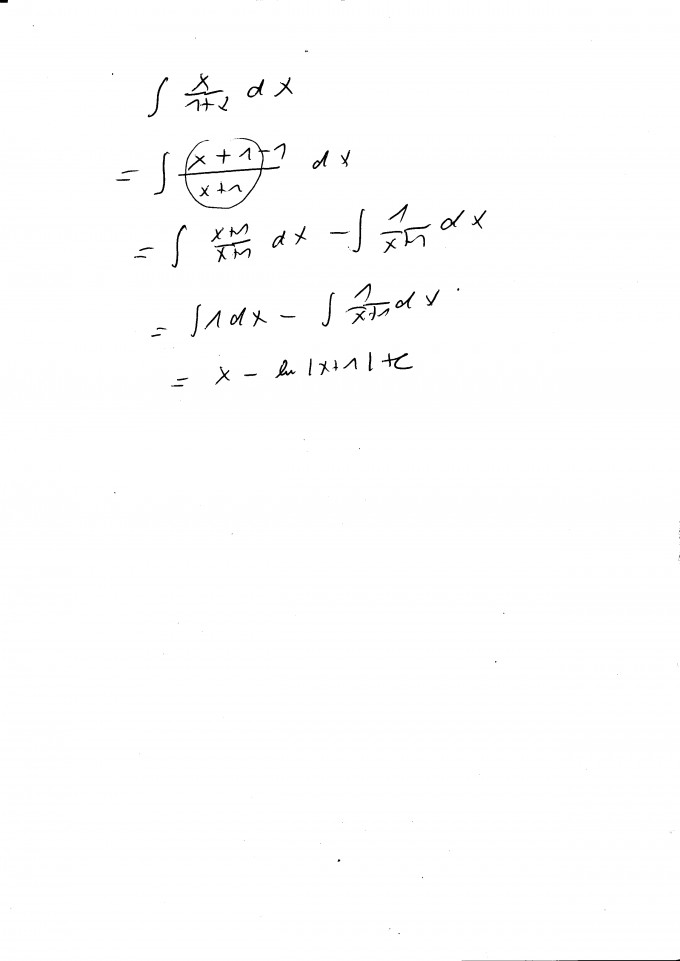 ∫ x/(1+x) dx
= ∫ (x+1-1)/(x+1) dx
= ∫ (x+1)/(x+1) dx - ∫ 1/(x+1) dx
= ∫ 1 dx - ∫ 1/(x+1) dx
= x - ln |x+1| + c